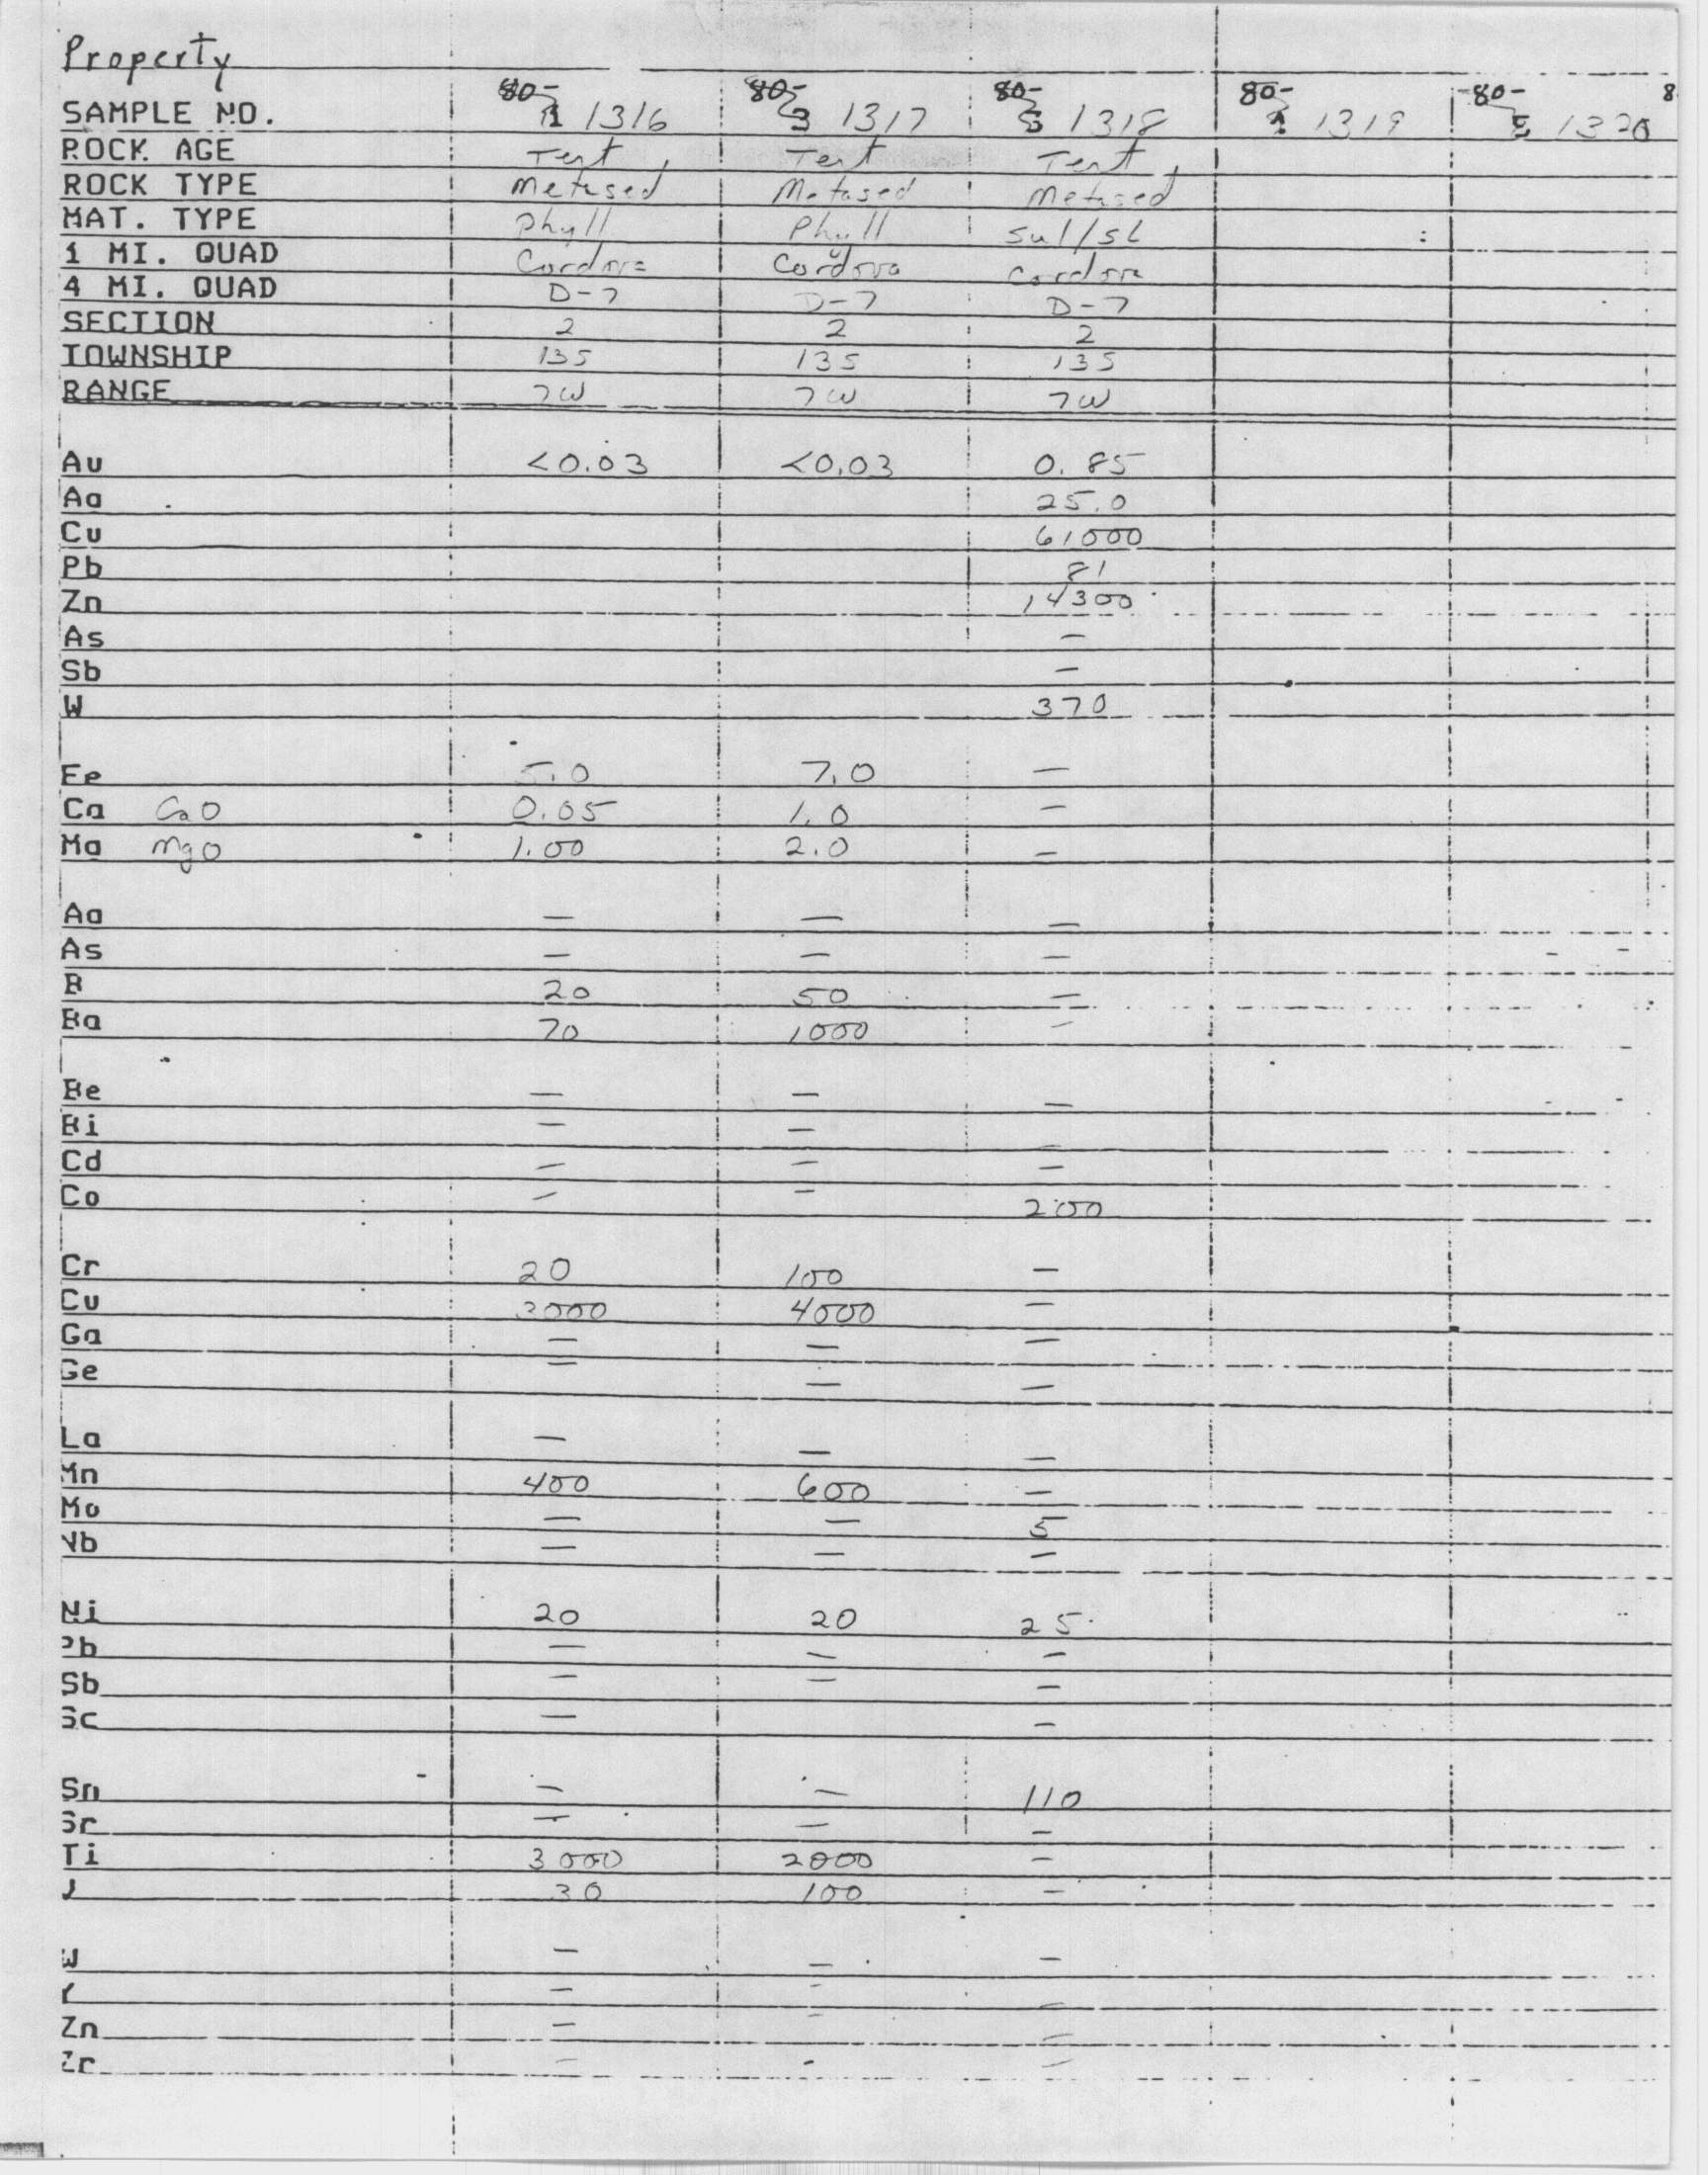 Property
SAMPLE NO. 80- 1 1316 80- 3 1317 80- 5 1318 80- 1319 80- 1320 8
ROCK AGE Tert Tert Tert
ROCK TYPE Metased Metased Metased
MAT. TYPE Phyll Phyll Sul/sl
1 MI. QUAD Cordova Cordova Cordova
4 MI. QUAD D-7 D-7 D-7
SECTION 2 2 2
TOWNSHIP 13S 13S 13S
RANGE 7W 7W 7W
Au <0.03 <0.03 0.85
Ag 25.0
Cu 61000
Pb 81
Zn 14300
As —
Sb —
W 370
Fe 5.0 7.0 —
Ca CaO 0.05 1.0 —
Mg MgO 1.00 2.0 —
Ag — — —
As — — —
B 20 50 —
Ba 70 1000 —
Be — — —
Bi — — —
Cd — — —
Co — — 200
Cr 20 100 —
Cu 3000 4000 —
Ga — — —
Ge — — —
La — — —
Mn 400 600 —
Mo — — 5
Nb — — —
Ni 20 20 25
Pb — — —
Sb — — —
Sc — —
Sn — — 110
Sr — — —
Ti 3000 2000 —
V 30 100 —
W — — —
Y — — —
Zn — — —
Zr — - —